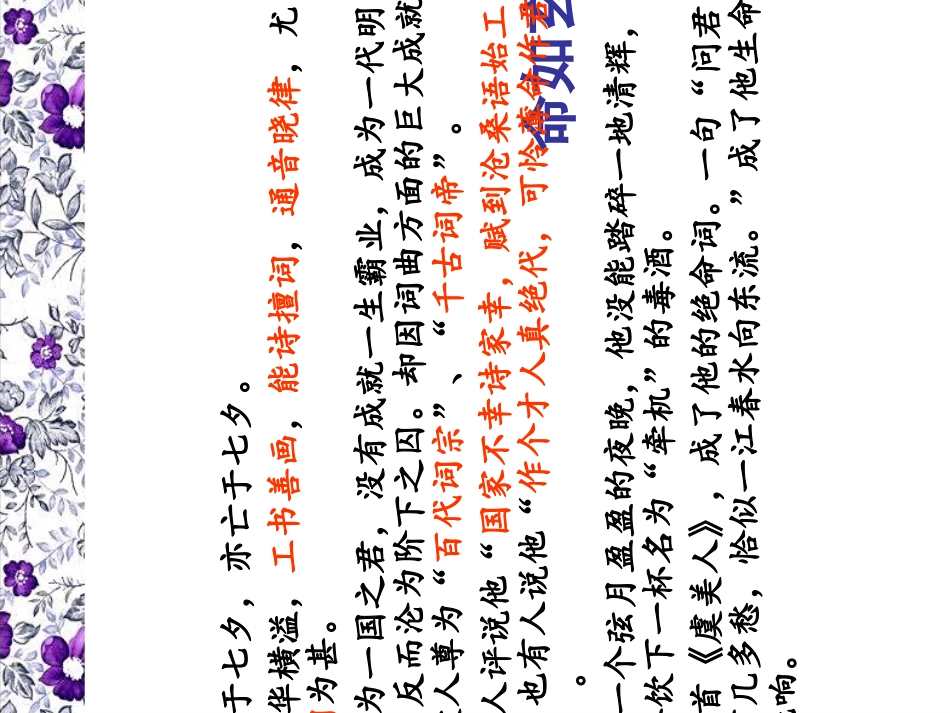 命如
于七夕，亦亡于七夕。
华横溢，工书善画，能诗擅词，通音晓律，尤
为甚。
为一国之君，没有成就一生霸业，成为一代明
反而沦为阶下之囚。却因词曲方面的巨大成就
人尊为“百代词宗”、“千古词帝”。
人评说他“国家不幸诗家幸，赋到沧桑语始工
也有人说他“作个才人真绝代，可怜薄命作君
。
一个弦月盈盈的夜晚，他没能踏碎一地清辉，
饮下一杯名为“牵机”的毒酒。
首《虞美人》，成了他的绝命词。一句“问君
几多愁，恰似一江春水向东流。”成了他生命
响。